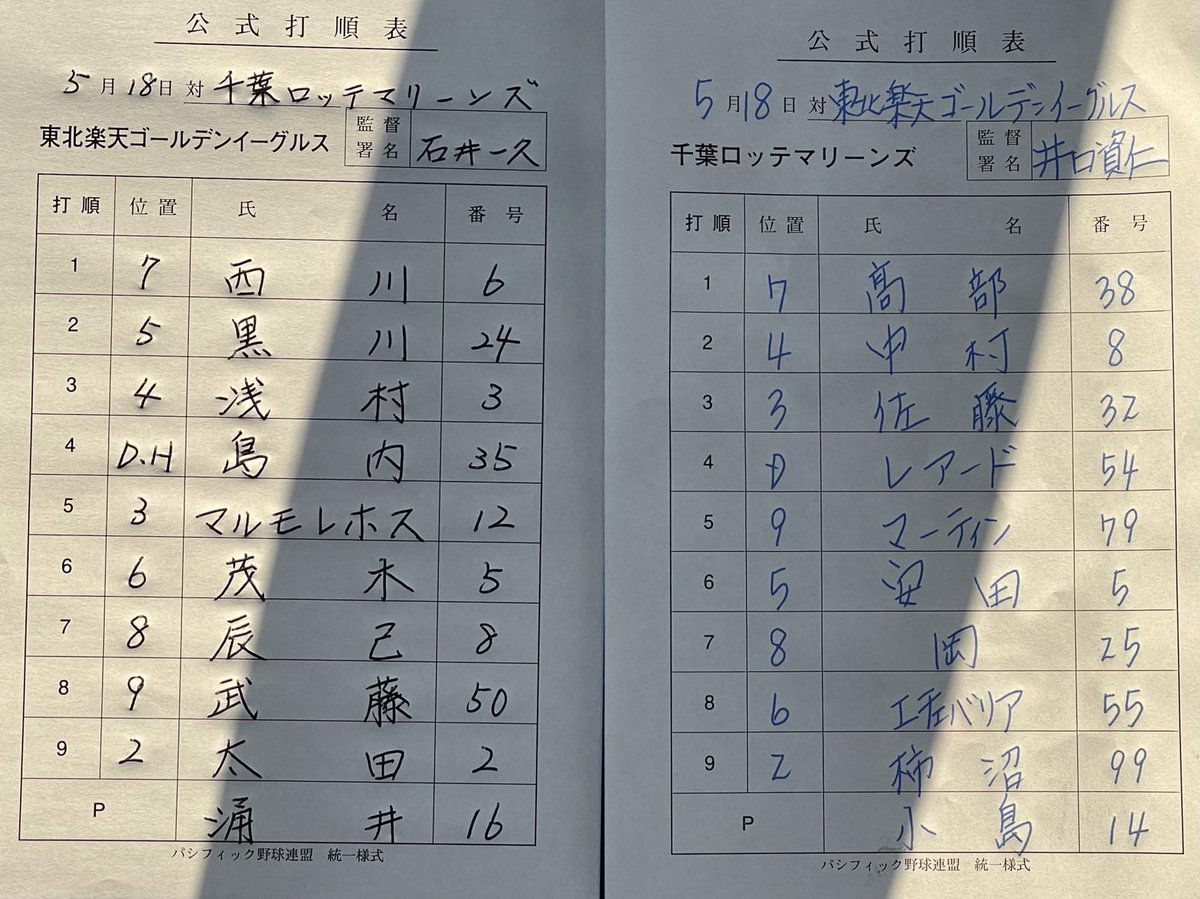 公式打順表
5月18日 対 千葉ロッテマリーンズ
東北楽天ゴールデンイーグルス 監督署名 石井一久
打順 位置 氏名 番号
1 7 西川 6
2 5 黒川 24
3 4 浅村 3
4 D.H 島内 35
5 3 マルモレホス 12
6 6 茂木 5
7 8 辰己 8
8 9 武藤 50
9 2 太田 2
P 涌井 16
パシフィック野球連盟 統一様式
公式打順表
5月18日 対 東北楽天ゴールデンイーグルス
千葉ロッテマリーンズ 監督署名 井口資仁
打順 位置 氏名 番号
1 7 髙部 38
2 4 中村 8
3 3 佐藤 32
4 D レアード 54
5 9 マーティン 79
6 5 安田 5
7 8 岡 25
8 6 エチェバリア 55
9 2 柿沼 99
P 小島 14
パシフィック野球連盟 統一様式